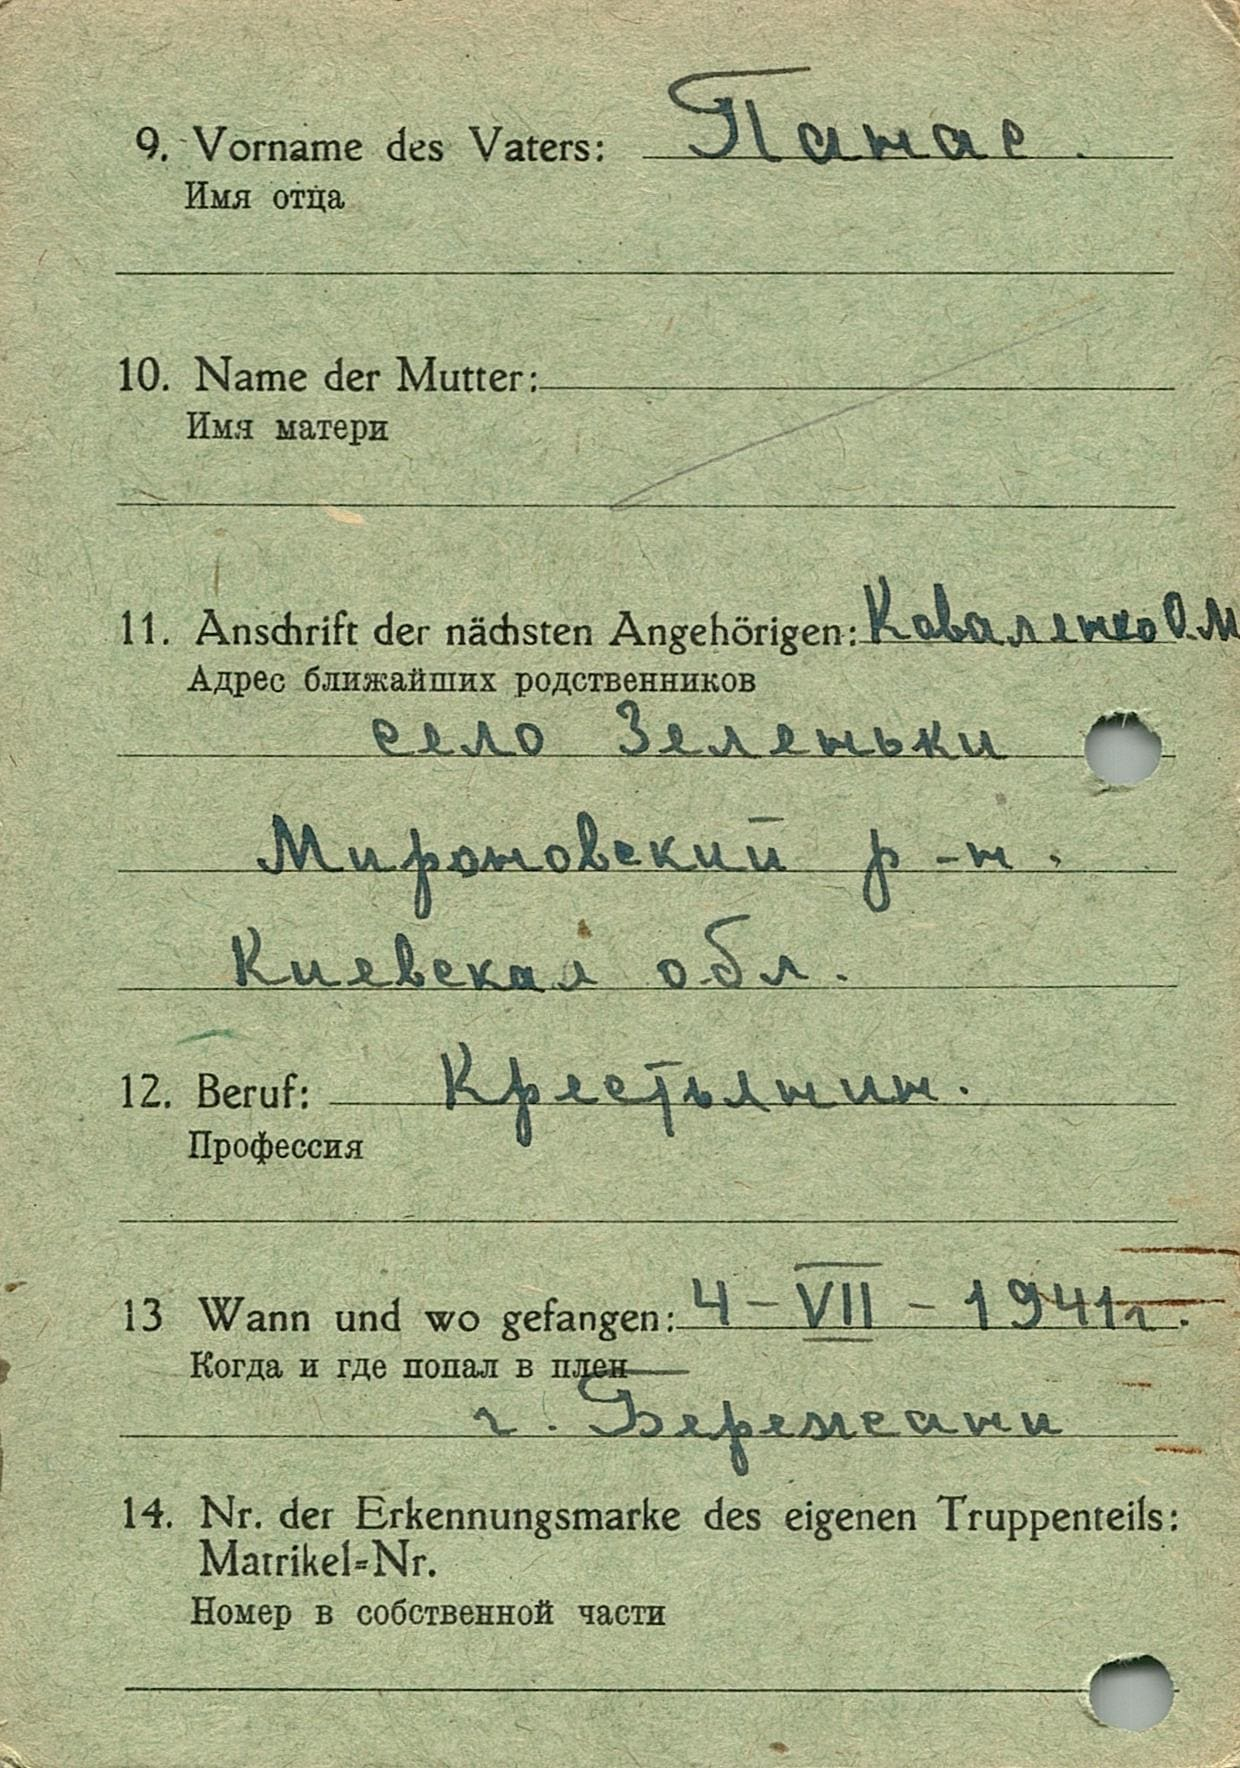 9. Vorname des Vaters: Панас.
Имя отца
10. Name der Mutter:
Имя матери
11. Anschrift der nächsten Angehörigen: Коваленко О.М
Адрес ближайших родственников
село Зеленьки
Мироновский р-н.
Киевская обл.
12. Beruf: Крестьянин.
Профессия
13 Wann und wo gefangen: 4-VII-1941г.
Когда и где попал в плен
г. Бережани
14. Nr. der Erkennungsmarke des eigenen Truppenteils:
Matrikel=Nr.
Номер в собственной части